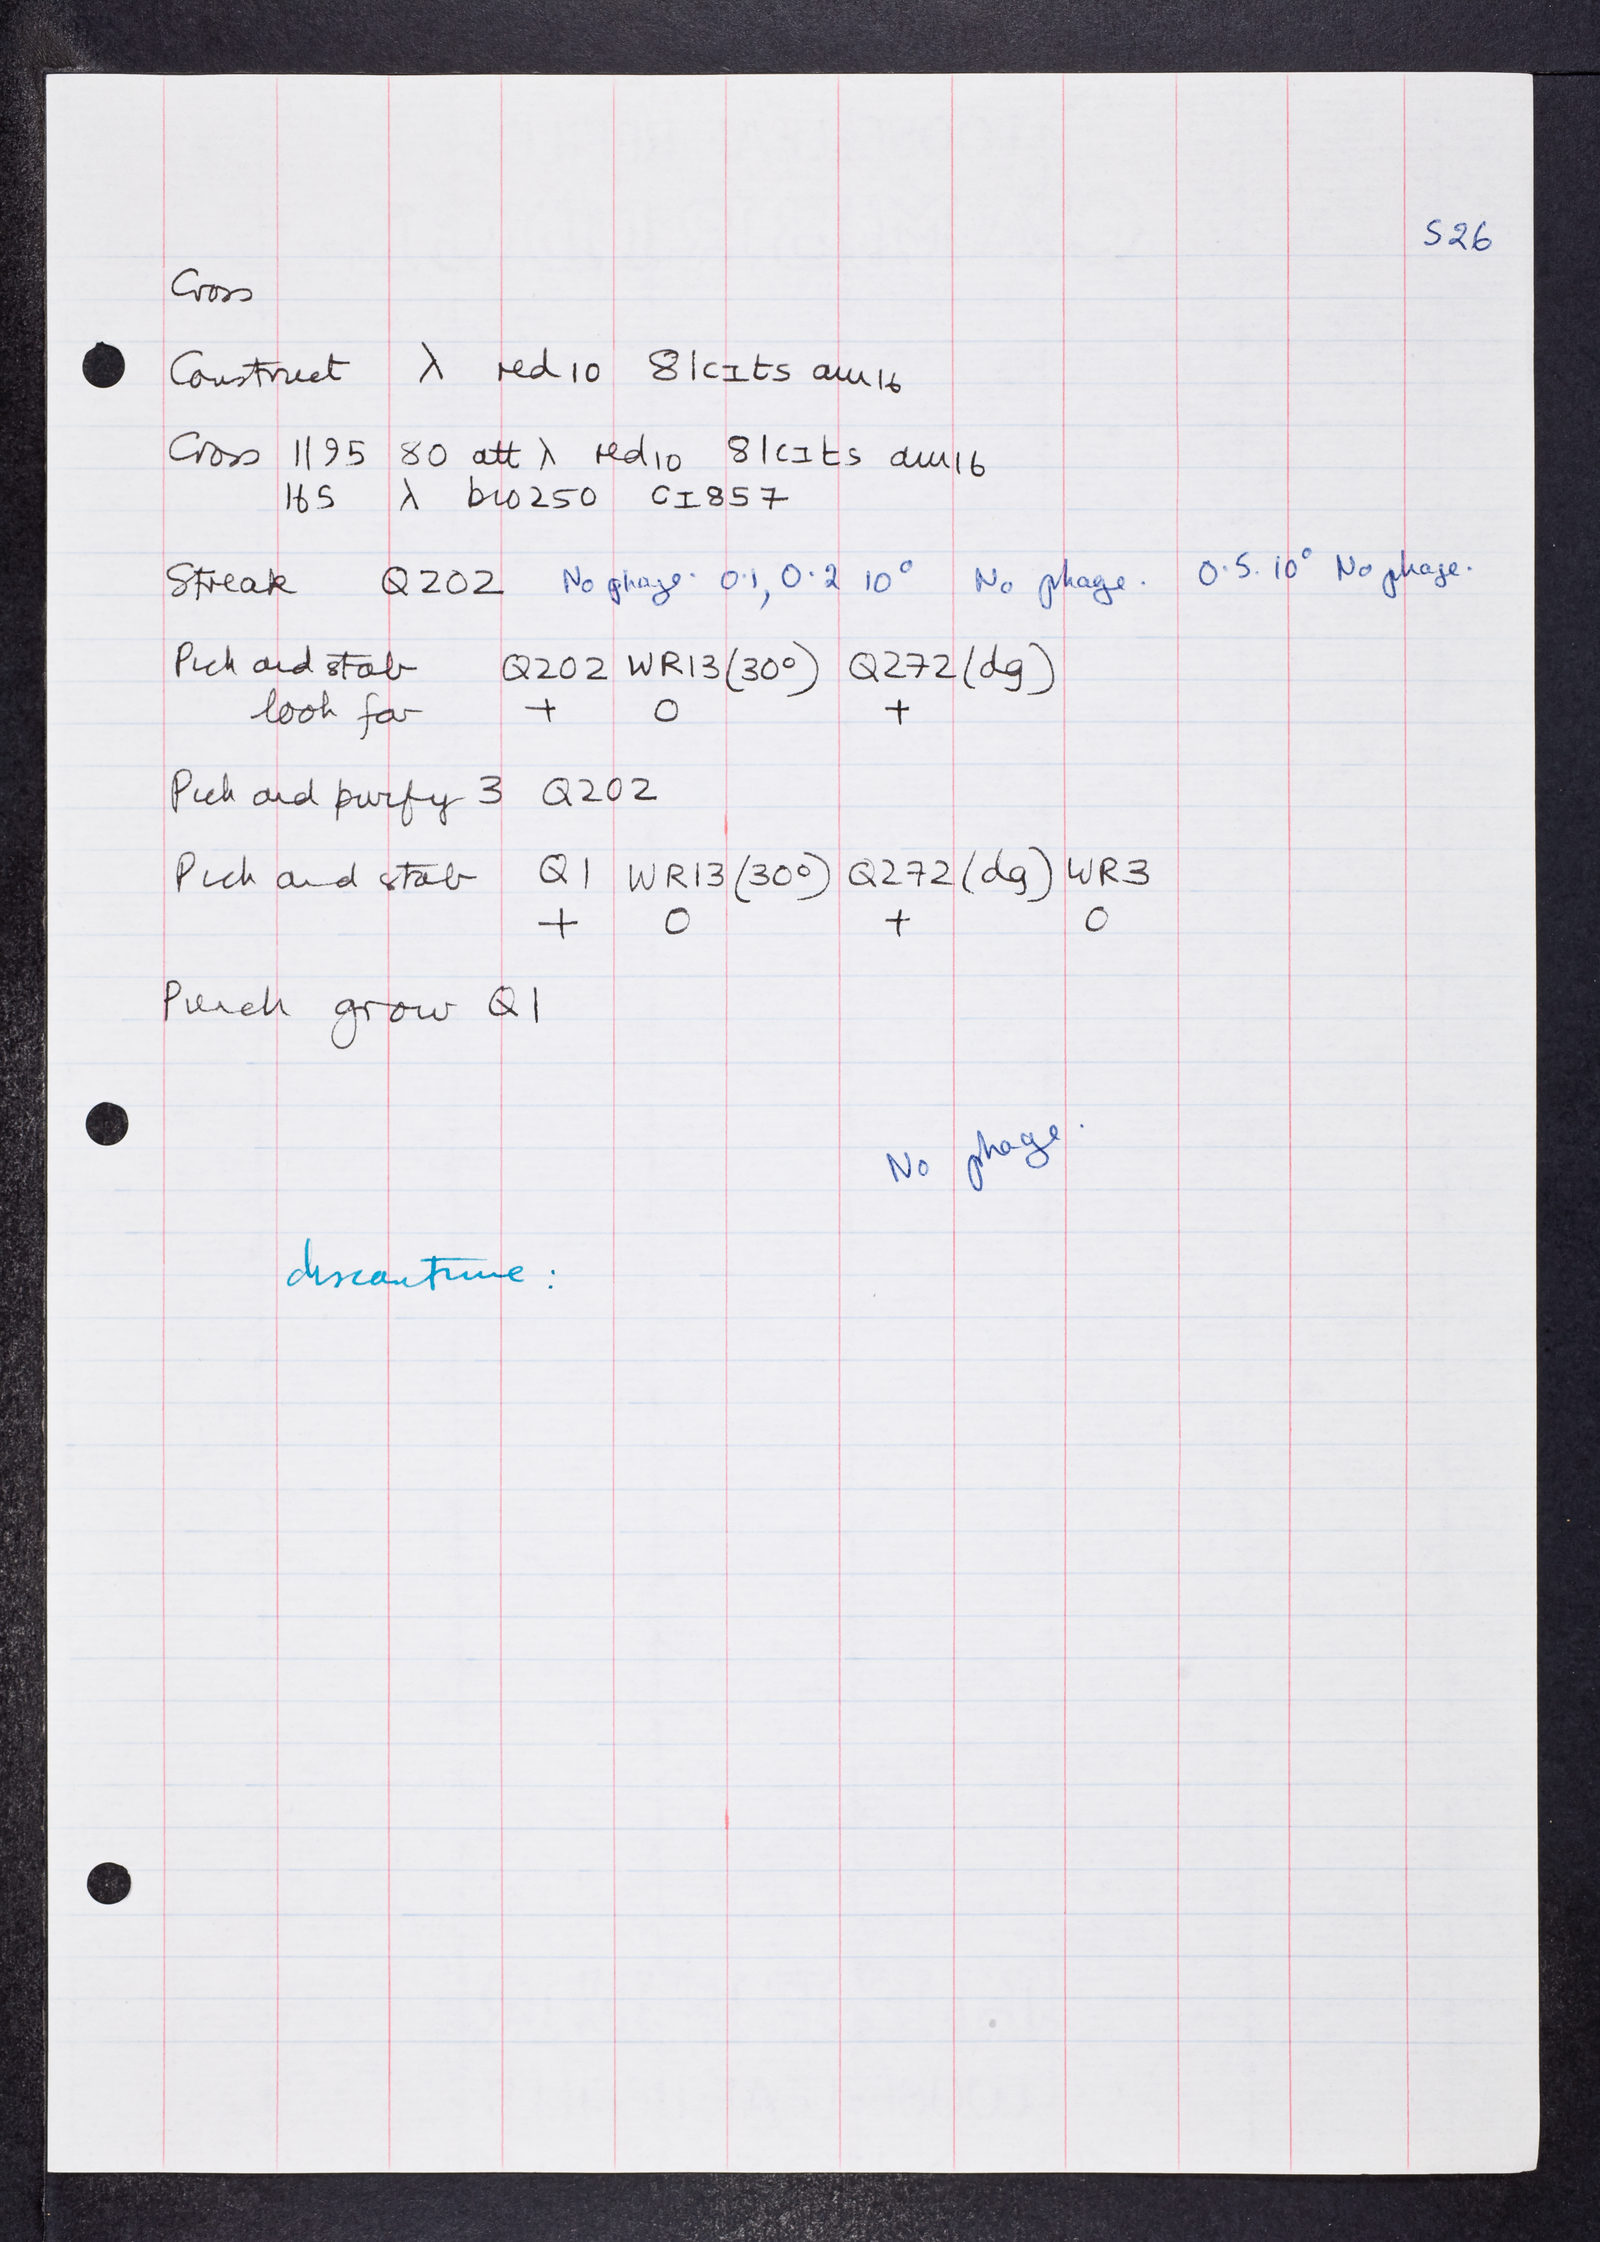 S26
Cross
Construct λ red10 81cIts am16
Cross 1195 80 att λ red10 81cIts am16
165 λ bio250 CI857
Streak Q202 No phage. 0.1, 0.2 10° No phage. 0.5. 10° No phage.
Pick and stab Q202 WR13(30°) Q272(dg)
look for + 0 +
Pick and purify 3 Q202
Pick and stab Q1 WR13(30°) Q272(dg) WR3
+ 0 + 0
Punch grow Q1
No phage.
discontinue: